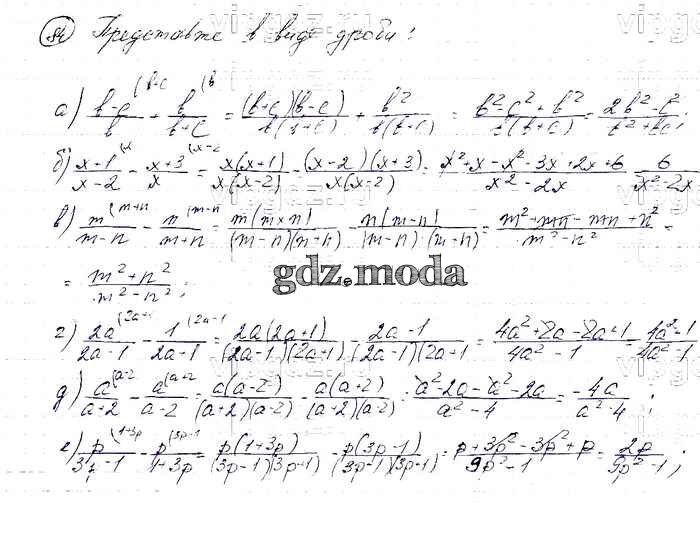 84 Представьте в виде дроби:
а) (b-c)/b (b+c + b/(b+c) (b = (b+c)(b-c)/b(b+c) + b²/b(b+c) = (b²-c²+b²)/b(b+c) = (2b²-c²)/(b²+bc);
б) (x+1)/(x-2) (x - (x+3)/x (x-2 = x(x+1)/x(x-2) - (x-2)(x+3)/x(x-2) = (x²+x-x²-3x+2x+6)/(x²-2x) 6/(x²-2x)
в) m/(m-n) (m+n - n/(m+n) (m-n = m(m+n)/(m-n)(m+n) - n(m-n)/(m-n)(m+n) = (m²+mn-mn+n²)/(m²-n²) =
= (m²+n²)/(m²-n²);
gdz.moda
г) 2a/(2a-1) (2a+1 - 1/(2a+1) (2a-1 = 2a(2a+1)/(2a-1)(2a+1) (2a-1)/(2a-1)(2a+1) = (4a²+2a-2a+1)/(4a²-1) = (4a²-1)/(4a²-1)
д) a/(a+2) (a-2 - a/(a-2) (a+2 = a(a-2)/(a+2)(a-2) - a(a+2)/(a+2)(a-2) = (a²-2a-a²-2a)/(a²-4) = -4a/(a²-4);
е) p/(3p-1) (1+3p - p/(1+3p) (3p-1 = p(1+3p)/(3p-1)(3p+1) - p(3p-1)/(3p-1)(3p+1) = (p+3p²-3p²+p)/(9p²-1) = 2p/(9p²-1);